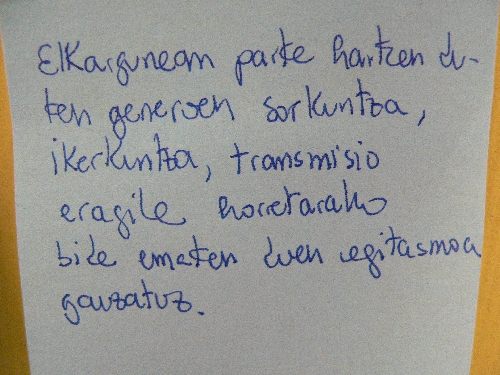 Elkargunean parte hartzen du-
ten generoen sorkuntza,
ikerkuntza, transmisio
eragile horretarako
bide ematen duen egitasmoa
gauzatuz.